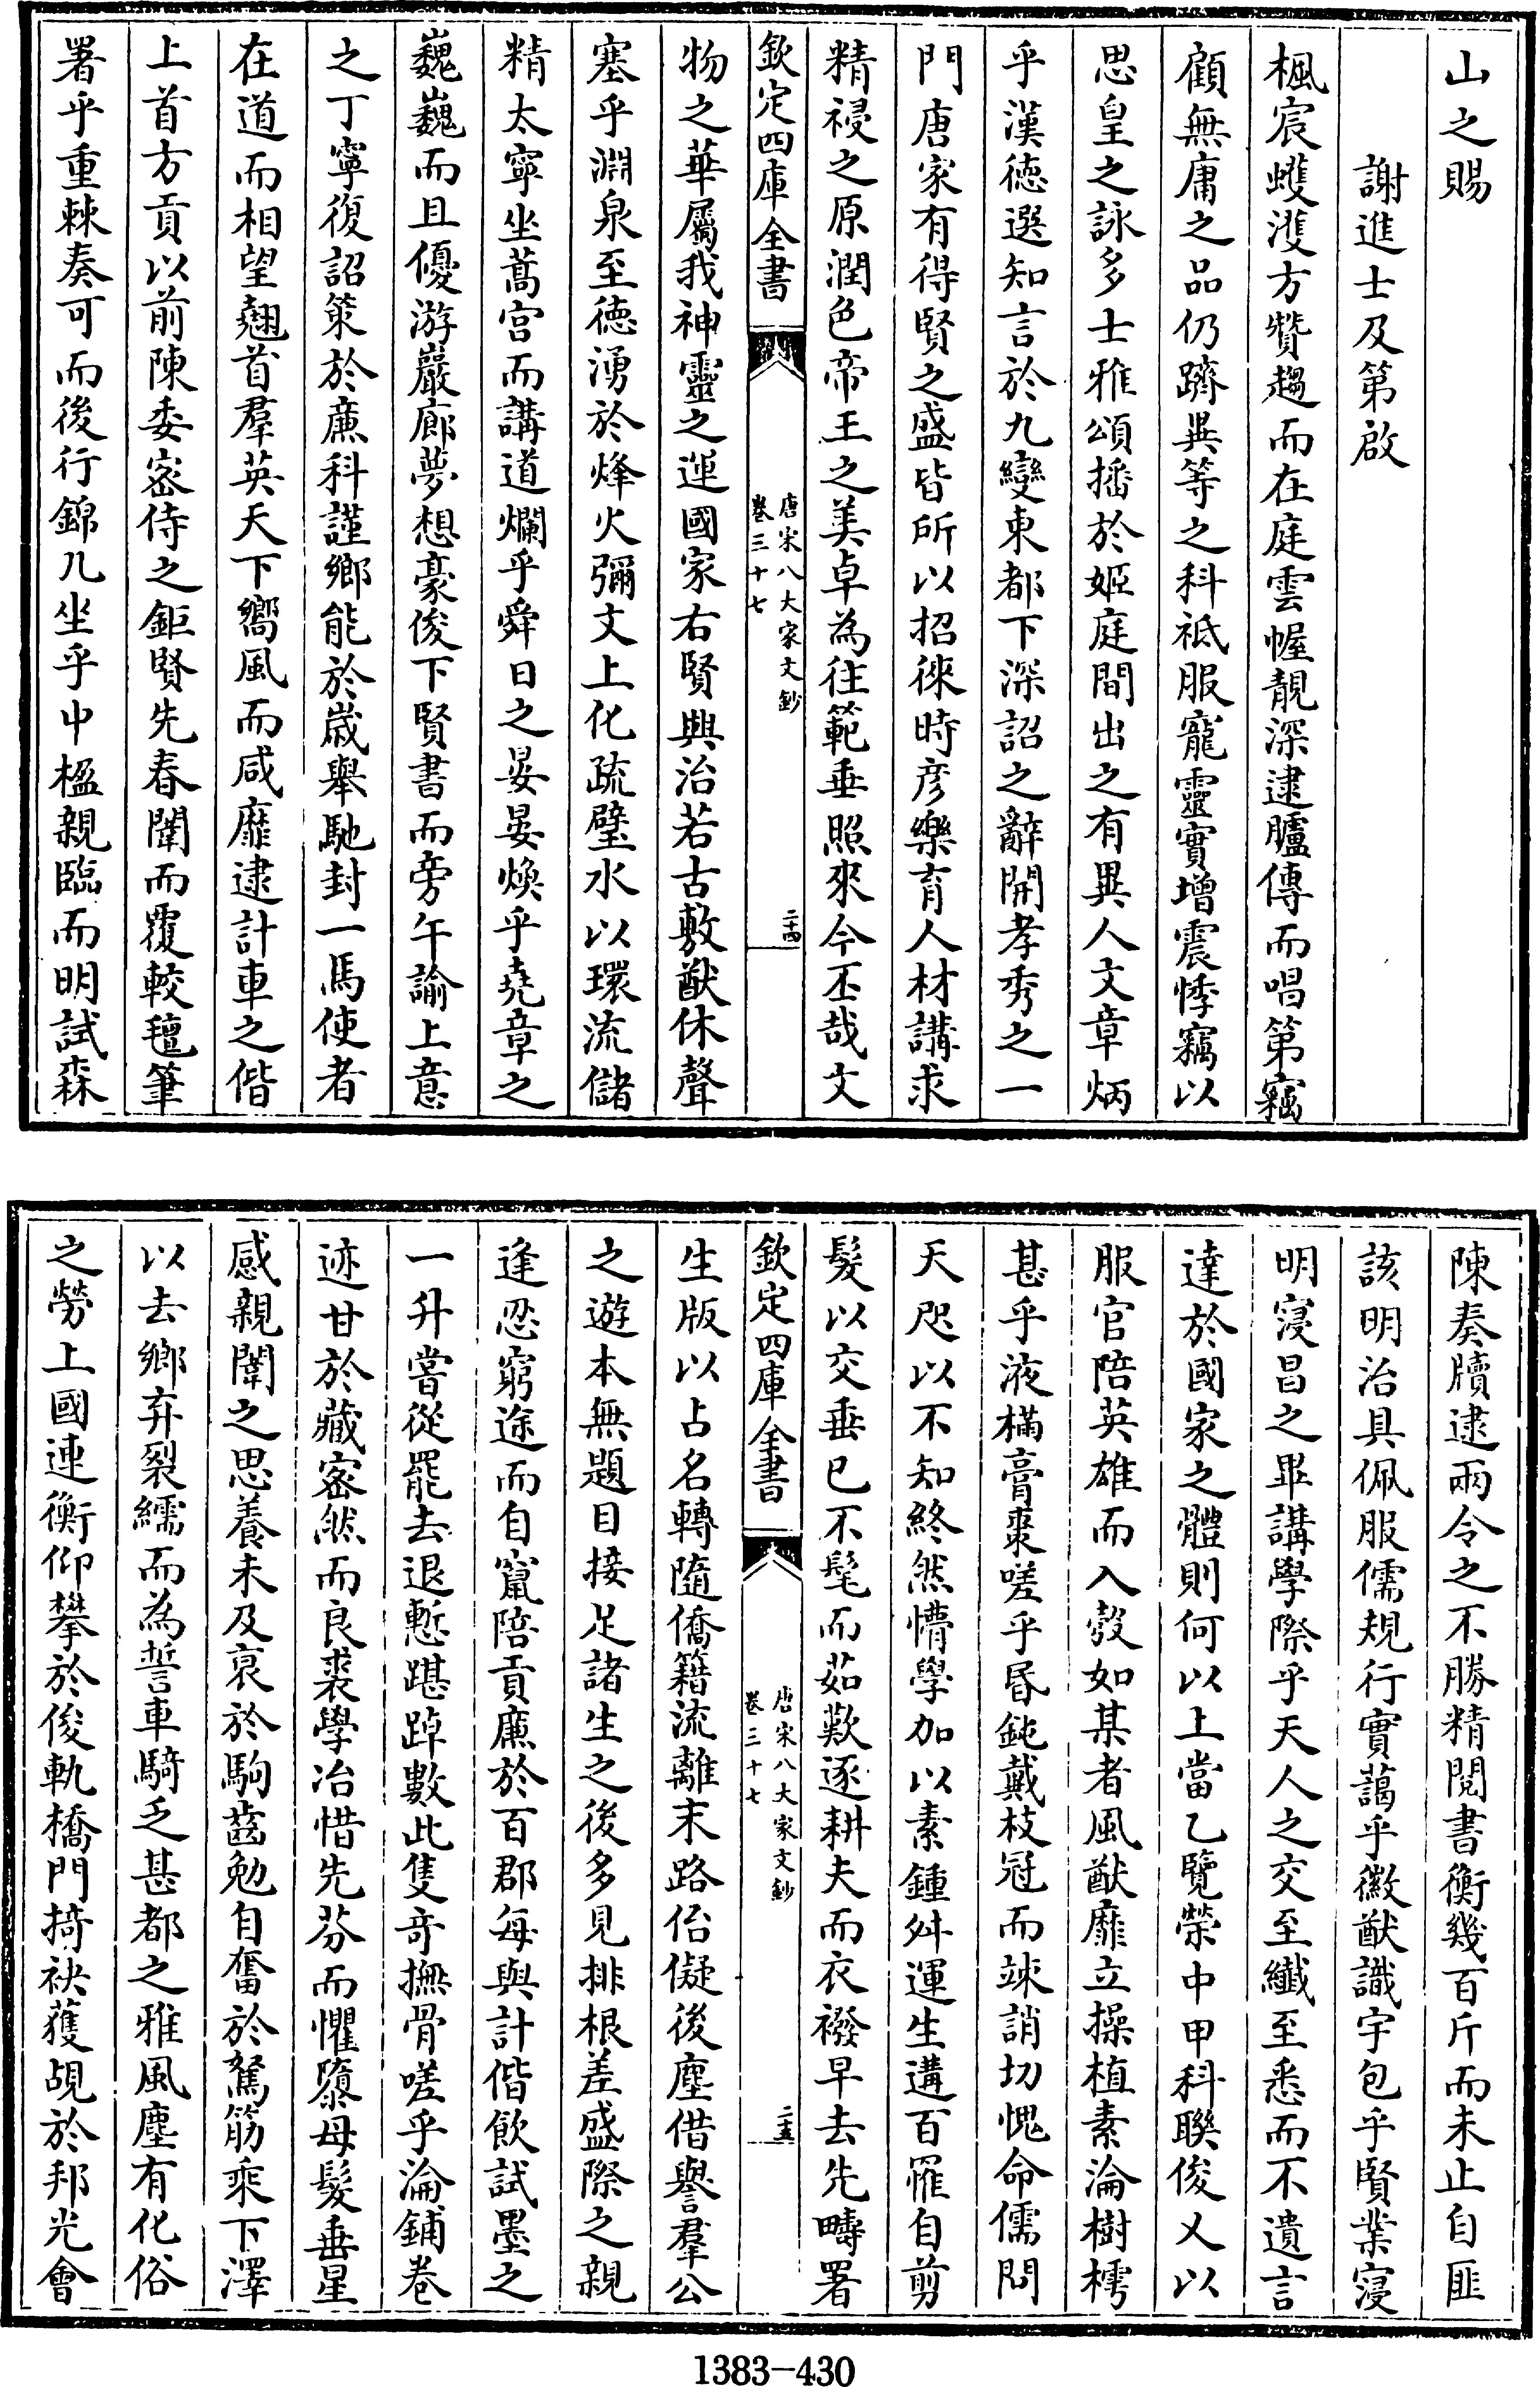 山之賜
謝進士及第啟
楓宸蠖濩方贊趨而在庭雲幄靚深逮臚傳而唱第竊
顧無庸之品仍躋異等之科祗服寵靈實增震悸竊以
思皇之詠多士雅頌播於姬庭間出之有異人文章炳
乎漢徳選知言於九變東都下深詔之辭開孝秀之一
門唐家有得賢之盛皆所以招徠時彦樂育人材講求
精祲之原潤色帝王之美卓為往範垂照來今丕哉文
欽定四庫全書
唐宋八大家文鈔
卷三十七
二十四
物之華屬我神靈之運國家右賢興治若古敷猷休聲
塞乎淵泉至徳湧於烽火彌文上化疏璧水以環流儲
精太寧坐蒿宫而講道爛乎舜日之晏晏焕乎堯章之
巍巍而且優游巖廊夢想豪俊下賢書而旁午諭上意
之丁寧復詔䇿於㢘科謹鄉能於嵗舉馳封一馬使者
在道而相望翹首羣英天下嚮風而咸靡逮計車之偕
上首方貢以前陳委宻侍之鉅賢先春闈而覆較氊筆
署乎重棘奏可而後行錦几坐乎中楹親臨而明試森
陳奏牘逮兩令之不勝精閱書衡幾百斤而未止自匪
該明治具佩服儒規行實藹乎徽猷識宇包乎賢業寖
明寖昌之畢講學際乎天人之交至纎至悉而不遺言
達於國家之體則何以上當乙覽榮中甲科聯俊乂以
服官陪英雄而入彀如某者風猷靡立操植素淪樹樗
甚乎液樠膏棗嗟乎昬鈍戴枝冠而竦誚切愧命儒問
天咫以不知終然懵學加以素鍾舛運生遘百罹自剪
髮以交垂已不髦而茹歎逐耕夫而衣襏早去先疇署
欽定四庫全書
唐宋八大家文鈔
卷三十七
二十五
生版以占名轉隨僑籍流離末路佁儗後塵借譽羣公
之遊本無題目接足諸生之後多見排根差盛際之親
逢忍窮途而自竄陪貢㢘於百郡每與計偕飲試墨之
一升嘗從罷去退慙踸踔數此隻竒撫骨嗟乎淪鋪卷
迹甘於藏宻然而良裘學冶惜先芬而懼隳母髮垂星
感親闈之思養未及衷於駒齒勉自奮於駑筋乘下澤
以去鄉弃裂繻而為誓車騎乏甚都之雅風塵有化俗
之勞上國連衡仰攀於俊軌橋門掎袂獲覘於邦光會
1383-430